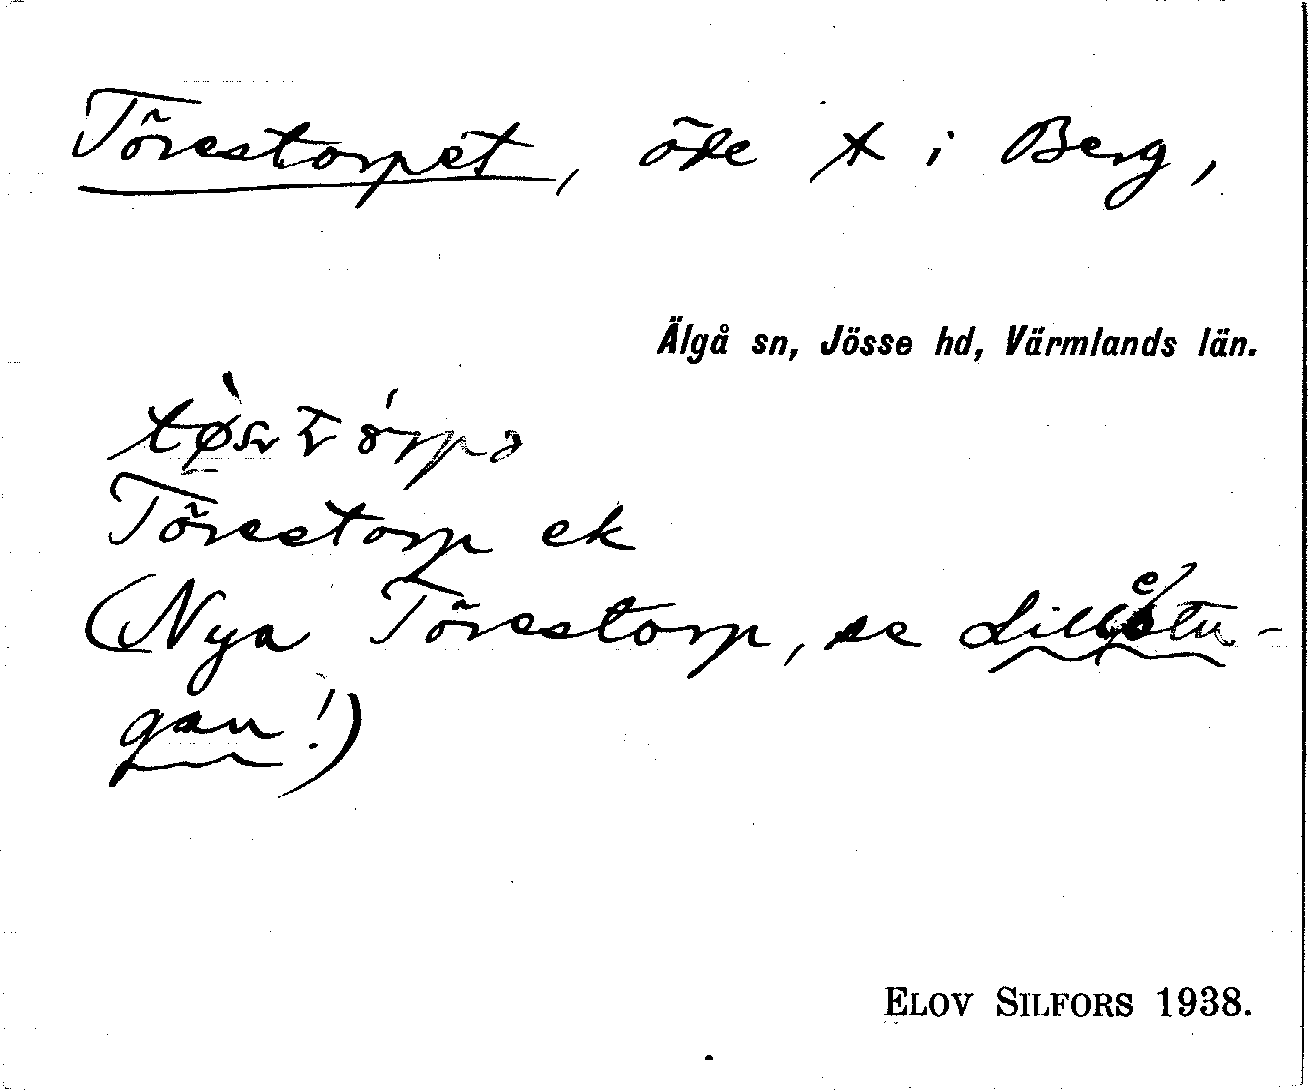 Törestorpet, öde t i Berg,
Älgå sn, Jösse hd, Värmlands län.
Törestorp ek
(Nya Törestorp, se Lillestu-
gan!)
ELOV SILFORS 1938.